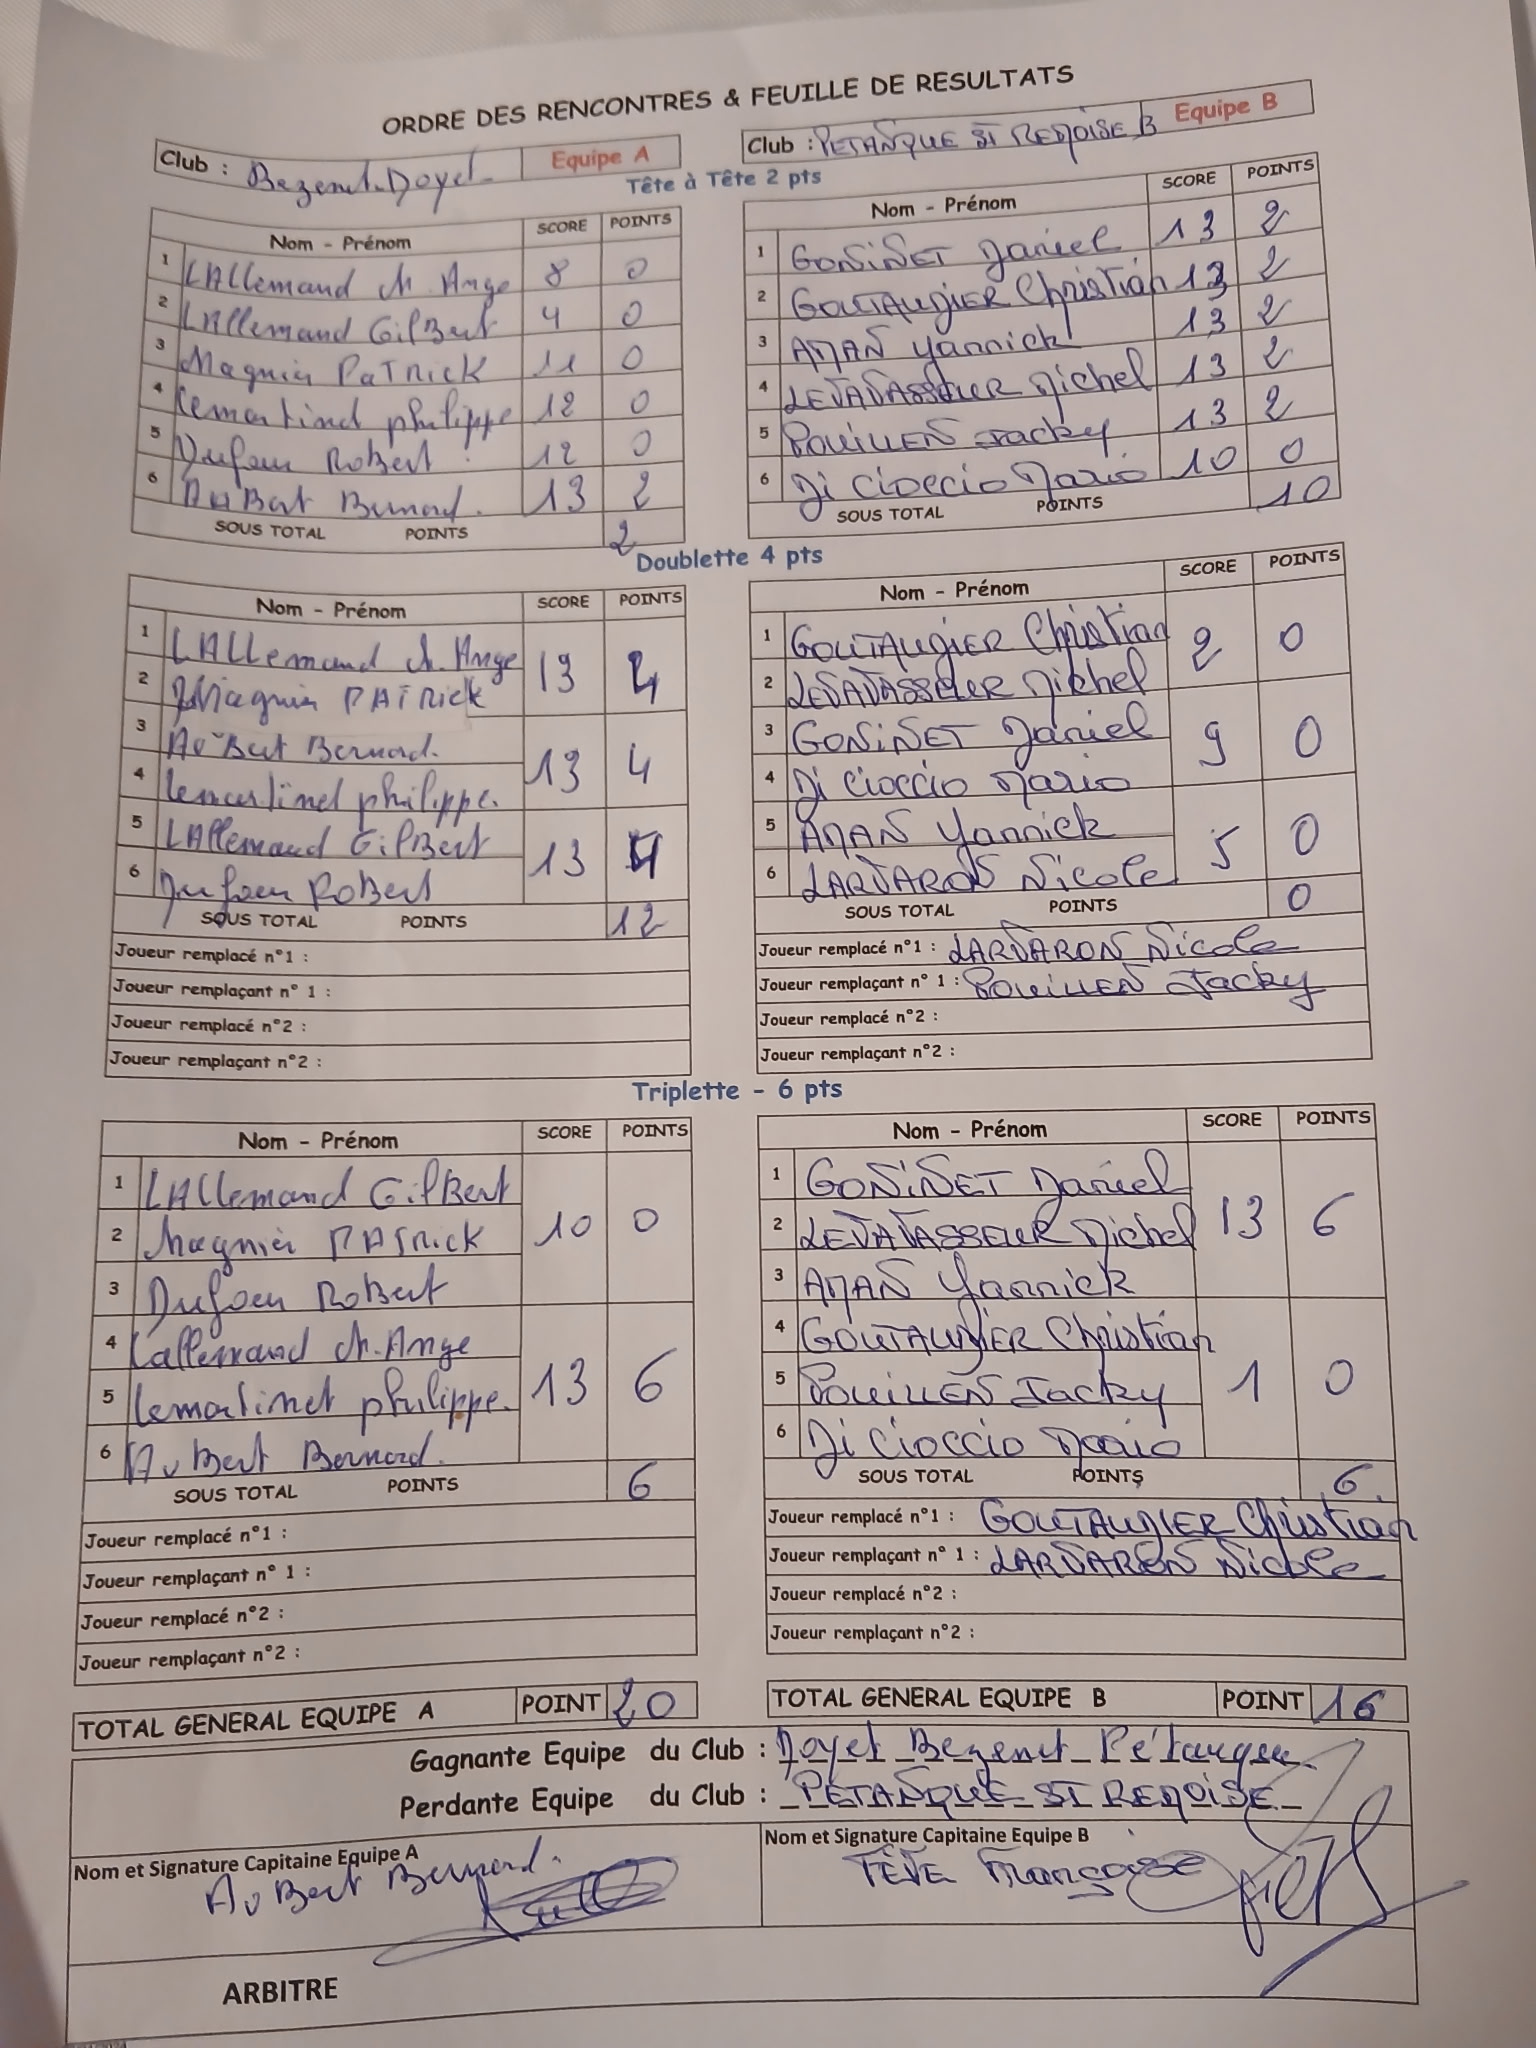 ORDRE DES RENCONTRES & FEUILLE DE RESULTATS
Club : Bezenet-Doyet Equipe A
Club : PETANQUE ST REMOISE B Equipe B
Tête à Tête 2 pts
Nom - Prénom SCORE POINTS
1 LAllemand M. Ange 8 0
2 LAllemand GilBert 4 0
3 Magnier PaTRick 11 0
4 Lemartinet philippe 12 0
5 Dufour RoBert 12 0
6 AuBert Bernard. 13 2
SOUS TOTAL POINTS 2
Nom - Prénom SCORE POINTS
1 GONINET Daniel 13 2
2 GOUTAUDIER Christian 13 2
3 AMAN Yannick 13 2
4 LEVAVASSEUR Michel 13 2
5 POUILLEN Jacky 13 2
6 Di Cioccio Mario 10 0
SOUS TOTAL POINTS 10
Doublette 4 pts
Nom - Prénom SCORE POINTS
1 LAllemand M. Ange 13 4
2 Magnier PATRick
3 AuBert Bernard. 13 4
4 Lemartinet philippe.
5 LAllemand GilBert 13 4
6 Dufour RoBert
SOUS TOTAL POINTS 12
Joueur remplacé n°1 :
Joueur remplaçant n° 1 :
Joueur remplacé n°2 :
Joueur remplaçant n°2 :
Nom - Prénom SCORE POINTS
1 GOUTAUDIER Christian 2 0
2 LEVAVASSEUR Michel
3 GONINET Daniel 9 0
4 Di Cioccio Mario
5 AMAN Yannick 5 0
6 LARVARON Nicole
SOUS TOTAL POINTS 0
Joueur remplacé n°1 : LARVARON Nicole
Joueur remplaçant n° 1 : POUILLEN Jacky
Joueur remplacé n°2 :
Joueur remplaçant n°2 :
Triplette - 6 pts
Nom - Prénom SCORE POINTS
1 LAllemand GilBert 10 0
2 Magnier PATRICK
3 Dufour RoBert
4 Lallemand M. Ange 13 6
5 Lemartinet philippe.
6 AuBert Bernard.
SOUS TOTAL POINTS 6
Joueur remplacé n°1 :
Joueur remplaçant n° 1 :
Joueur remplacé n°2 :
Joueur remplaçant n°2 :
Nom - Prénom SCORE POINTS
1 GONINET Daniel 13 6
2 LEVAVASSEUR Michel
3 AMAN Yannick
4 GOUTAUDIER Christian 1 0
5 POUILLEN Jacky
6 Di Cioccio Mario
SOUS TOTAL POINTS 6
Joueur remplacé n°1 : GOUTAUDIER Christian
Joueur remplaçant n° 1 : LARVARON Nicole
Joueur remplacé n°2 :
Joueur remplaçant n°2 :
TOTAL GENERAL EQUIPE A POINT 20
TOTAL GENERAL EQUIPE B POINT 16
Gagnante Equipe du Club : Doyet Bezenet Pétanque
Perdante Equipe du Club : PETANQUE ST REMOISE
Nom et Signature Capitaine Equipe A
AuBert Bernard.
Nom et Signature Capitaine Equipe B
TÊTE Françoise
ARBITRE